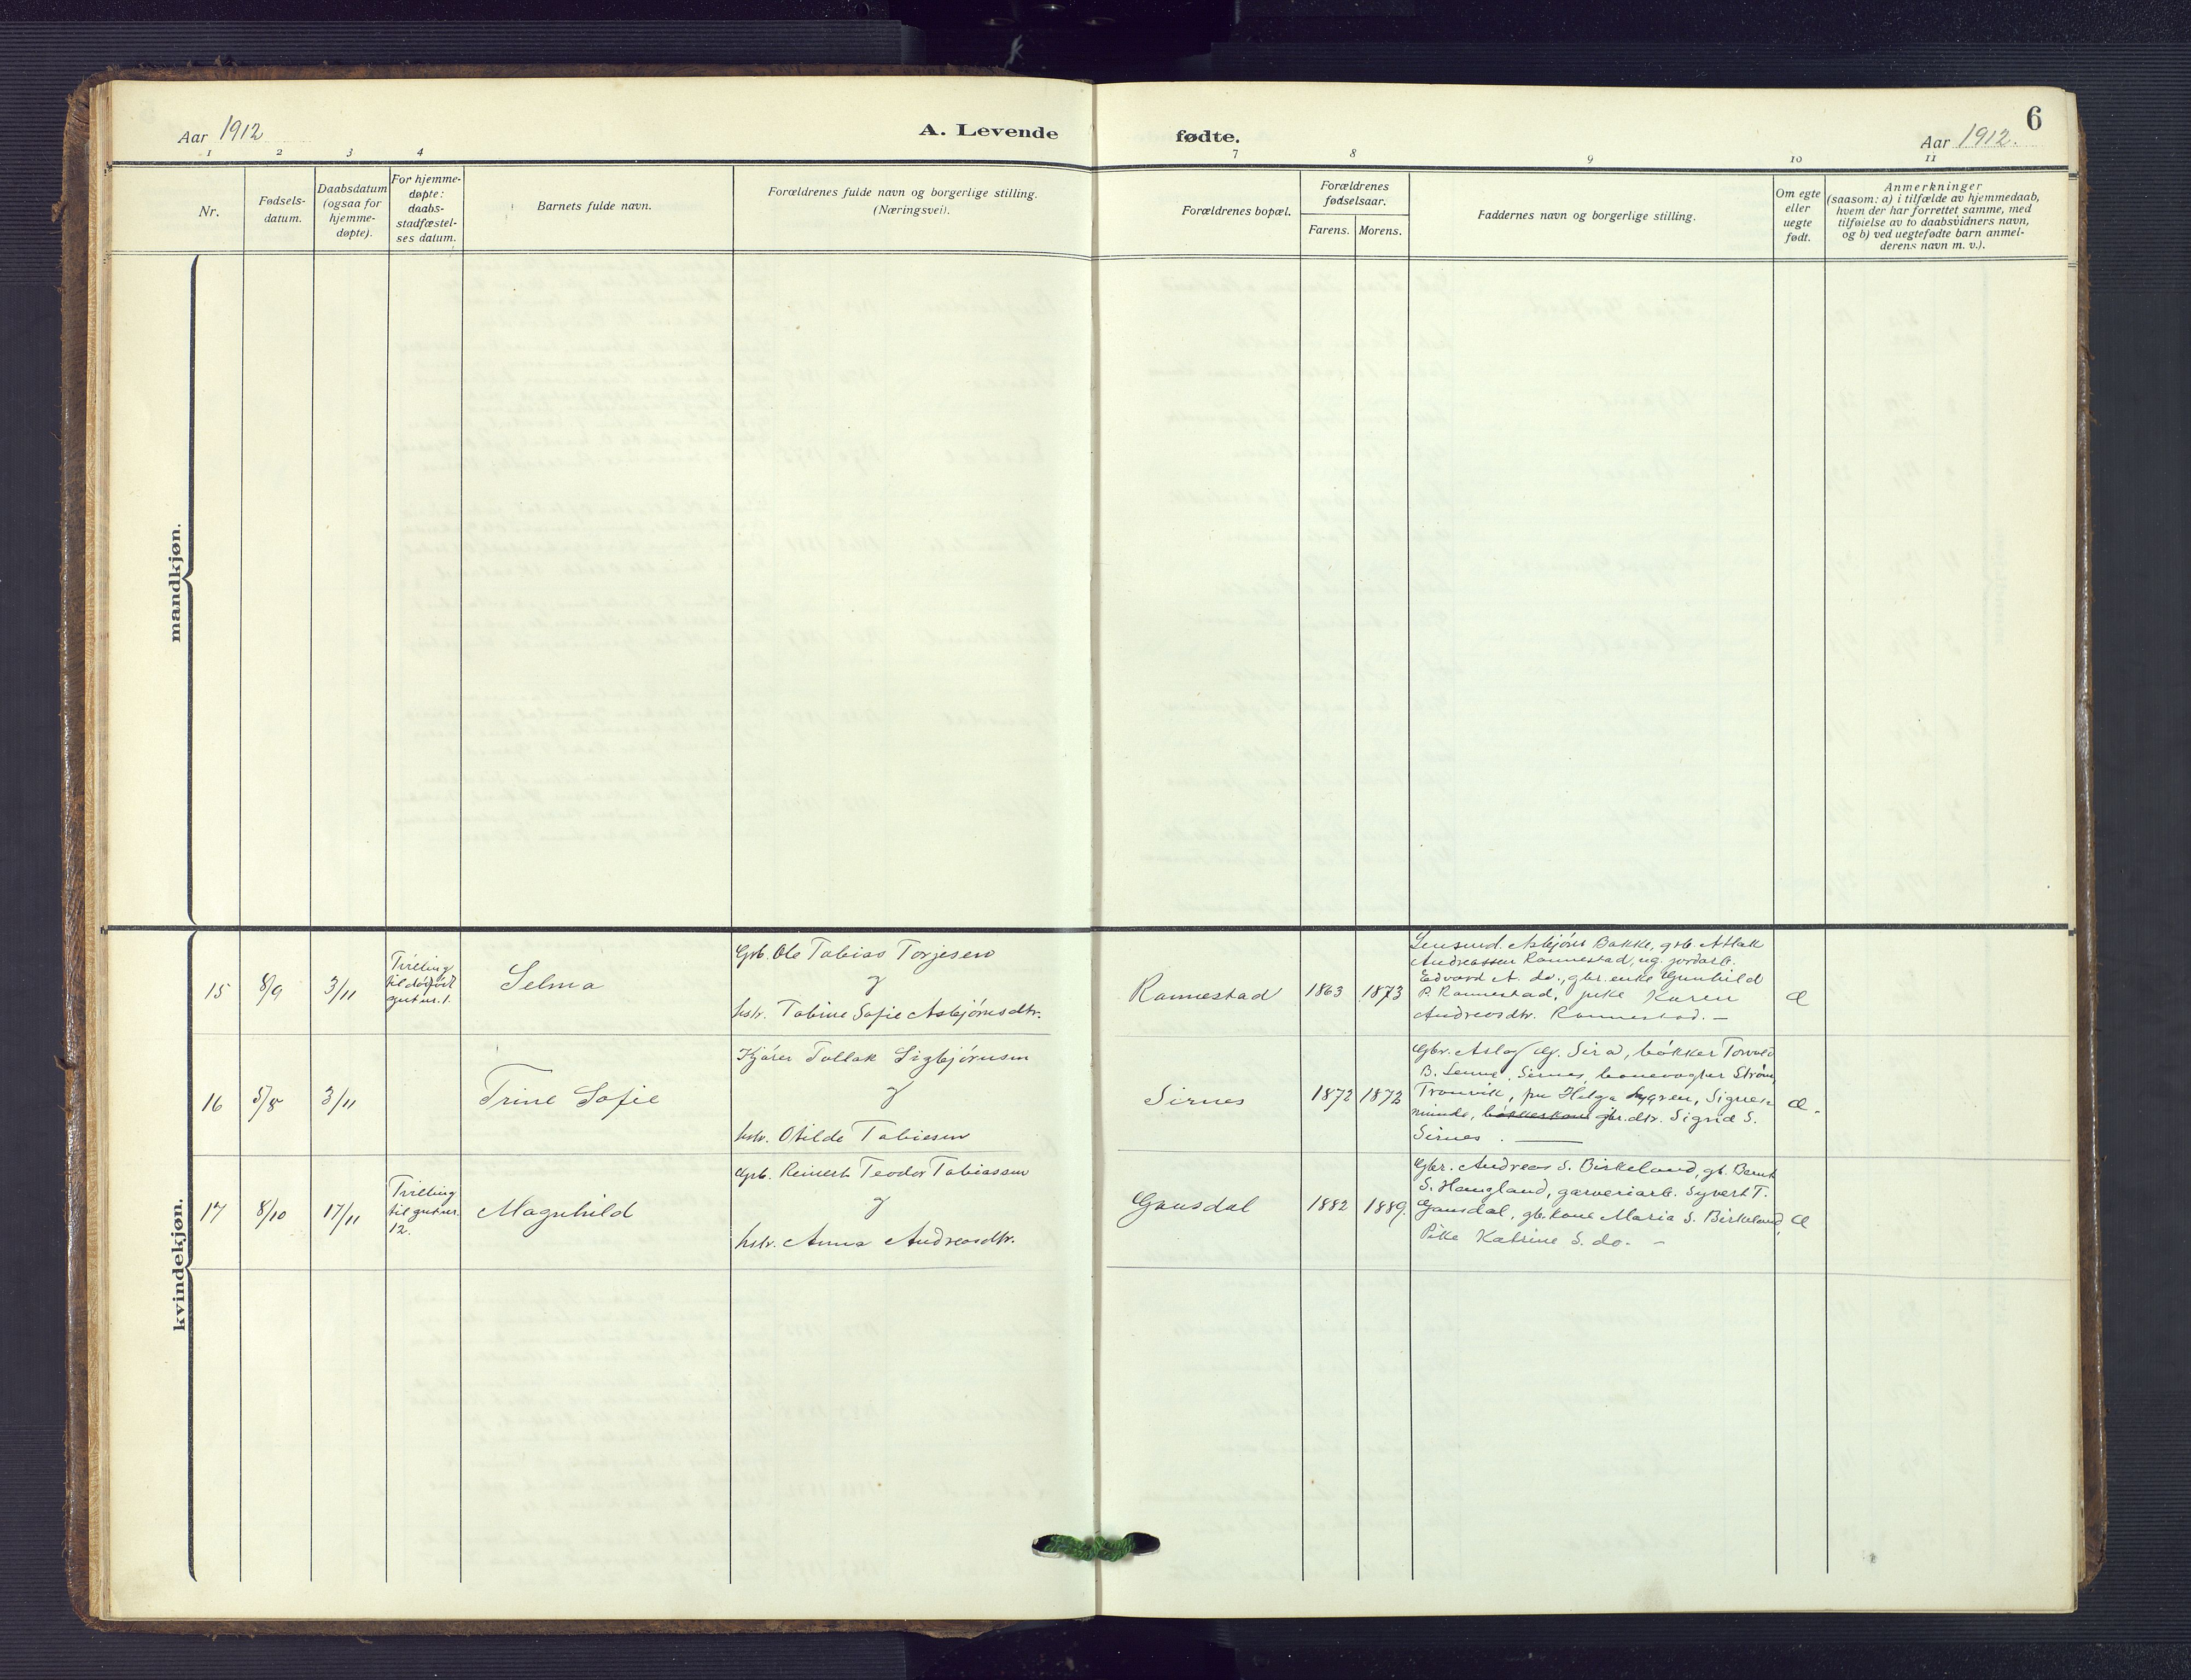 6
Aar 1912
A. Levende
fødte.
Aar 1912.
1 2 3 4 7 8 9 10 11
Nr.
Fødsels-
datum.
Daabsdatum
(ogsaa for
hjemme-
døpte).
For hjemme-
døpte:
daabs-
stadfæstel-
ses datum.
Barnets fulde navn.
Forældrenes fulde navn og borgerlige stilling.
(Næringsvei).
Forældrenes bopæl.
Forældrenes
fødselsaar.
Farens. Morens.
Faddernes navn og borgerlige stilling.
Om egte
eller
uegte
født.
Anmerkninger
(saasom: a) i tilfælde av hjemmedaab,
hvem der har forrettet samme, med
tilføielse av to daabsvidners navn,
og b) ved uegtefødte barn anmel-
derens navn m. v.).
mandkjøn.
kvindekjøn.
15
8/9
3/11
Tvilling
til dødfødt
gut nr. 1.
Selma
Grb. Ole Tobias Torjesen
og
hstr. Tobine Sofie Asbjörnsdtr.
Rannestad
1863
1873
Lensmd. Asbjörn Bakke, grb. Atlak
Andreassen Rannestad, ug. jordarb.
Edvard A. do., gbr. enke Gunhild
P. Rannestad, pike Karen
Andreasdtr. Rannestad. —
Æ
16
5/8
3/11
Trine Sofie
Kjörer Tollak Sigbjörnsen
og
hstr. Otilde Tobiesen
Sirnes
1872
1872
Gbr. Aslag G. Sira, bökker Torvald
B. Sirnes, banevogter Ström,
Tronvik, fru Helga Signes-
minde, gbr.dtr. Sigrid S.
Sirnes. —
Æ.
17
8/10
17/11
Tvilling
til gut nr.
12.
Magnhild
Grb. Reinert Teodor Tobiassen
og
hstr. Anna Andreasdtr.
Gausdal
1882
1889.
Gbr. Andreas S. Birkeland, gb. Bernt
S. Haugland, garveriarb. Syvert T.
Gausdal, gbr.kone Maria S. Birkeland,
Pike Katrine S. do. —
Æ